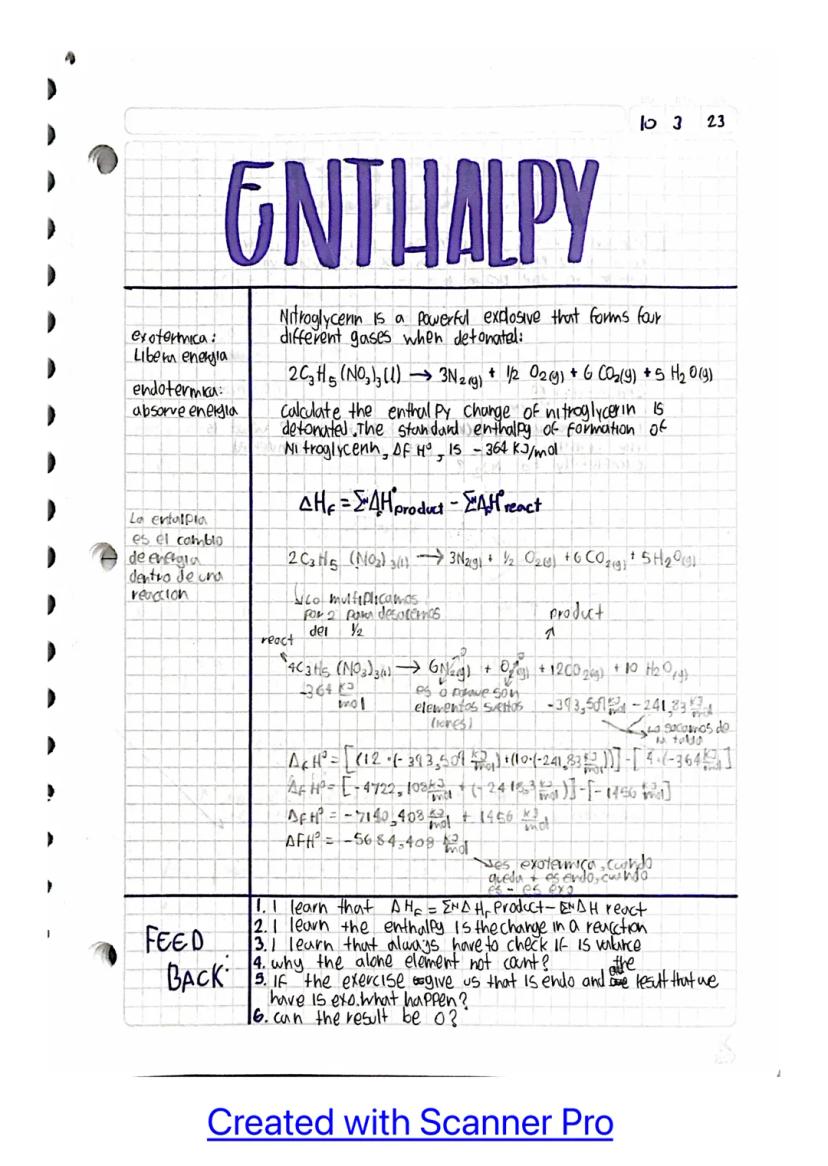 10 3 23
ENTHALPY
exotermica:
Libera energia
endotermica:
absorve energia
La entalpia
es el cambio
de energia
dentro de una
reaccion
Nitroglycerin is a powerful explosive that forms four
different gases when detonated:
2C₃H₅(NO₃)₃(l) → 3N₂(g) + 1/2 O₂(g) + 6 CO₂(g) + 5 H₂O(g)
calculate the enthalpy change of nitroglycerin is
detonated. The standard enthalpy of formation of
Nitroglycerin, ΔF H°, is -364 kJ/mol
ΔHf = ΣnΔfH°product - ΣnΔfH°react
2C₃H₅ (NO₂)₃(l) → 3N₂(g) + 1/2 O₂(g) + 6CO₂(g) + 5H₂O(g)
↳ Lo multiplicamos
por 2 para desacernos
del 1/2
product
react
4C₃H₅ (NO₃)₃(l) → 6N₂(g)⁰ + O₂(g)⁰ + 12CO₂(g) + 10 H₂O(g)
-364 kJ/mol
es 0 porque son
elementos sueltos
(iones)
-393,509 kJ/mol -241,83 kJ/mol
Lo sacamos de
la tabla
ΔfH° = [(12·(-393,509 kJ/mol)+(10·(-241,83 kJ/mol))] - [4·(-364 kJ/mol]
ΔfH° = [-4722,108 kJ/mol + (-2418,3 kJ/mol)] - [-1456 kJ/mol]
ΔfH° = -7140,408 kJ/mol + 1456 kJ/mol
ΔFH° = -5684,408 kJ/mol
→ es exotermica, cuando
queda + es endo, cuando
es - es exo
FEED
BACK:
1. I learn that ΔHf = ΣnΔHf Product - ΣnΔH react
2. I learn the enthalpy is the change in a reaction
3. I learn that always have to check if is valance
4. why the alone element not count?
5. IF the exercise give us that is endo and the result that we
have is exo. what happen?
6. can the result be 0?
Created with Scanner Pro